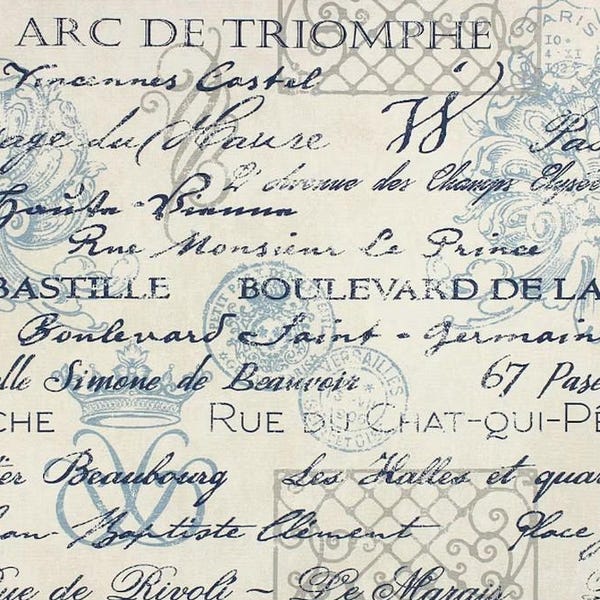 ARC DE TRIOMPHE
PARIS
Vincennes Castel
du Maure
L'Avenue des Champs Elysée
Haute-Vienne
Rue Monsieur Le Prince
BASTILLE BOULEVARD DE LA
Boulevard Saint-Germain
lle Simone de Beauvoir 67 Pas
VERSAILLES
CHE RUE DU CHAT-QUI-PÊ
er Beaubourg Les Halles et quar
an-Baptiste Clément Place
ue de Rivoli ~ Le Marais